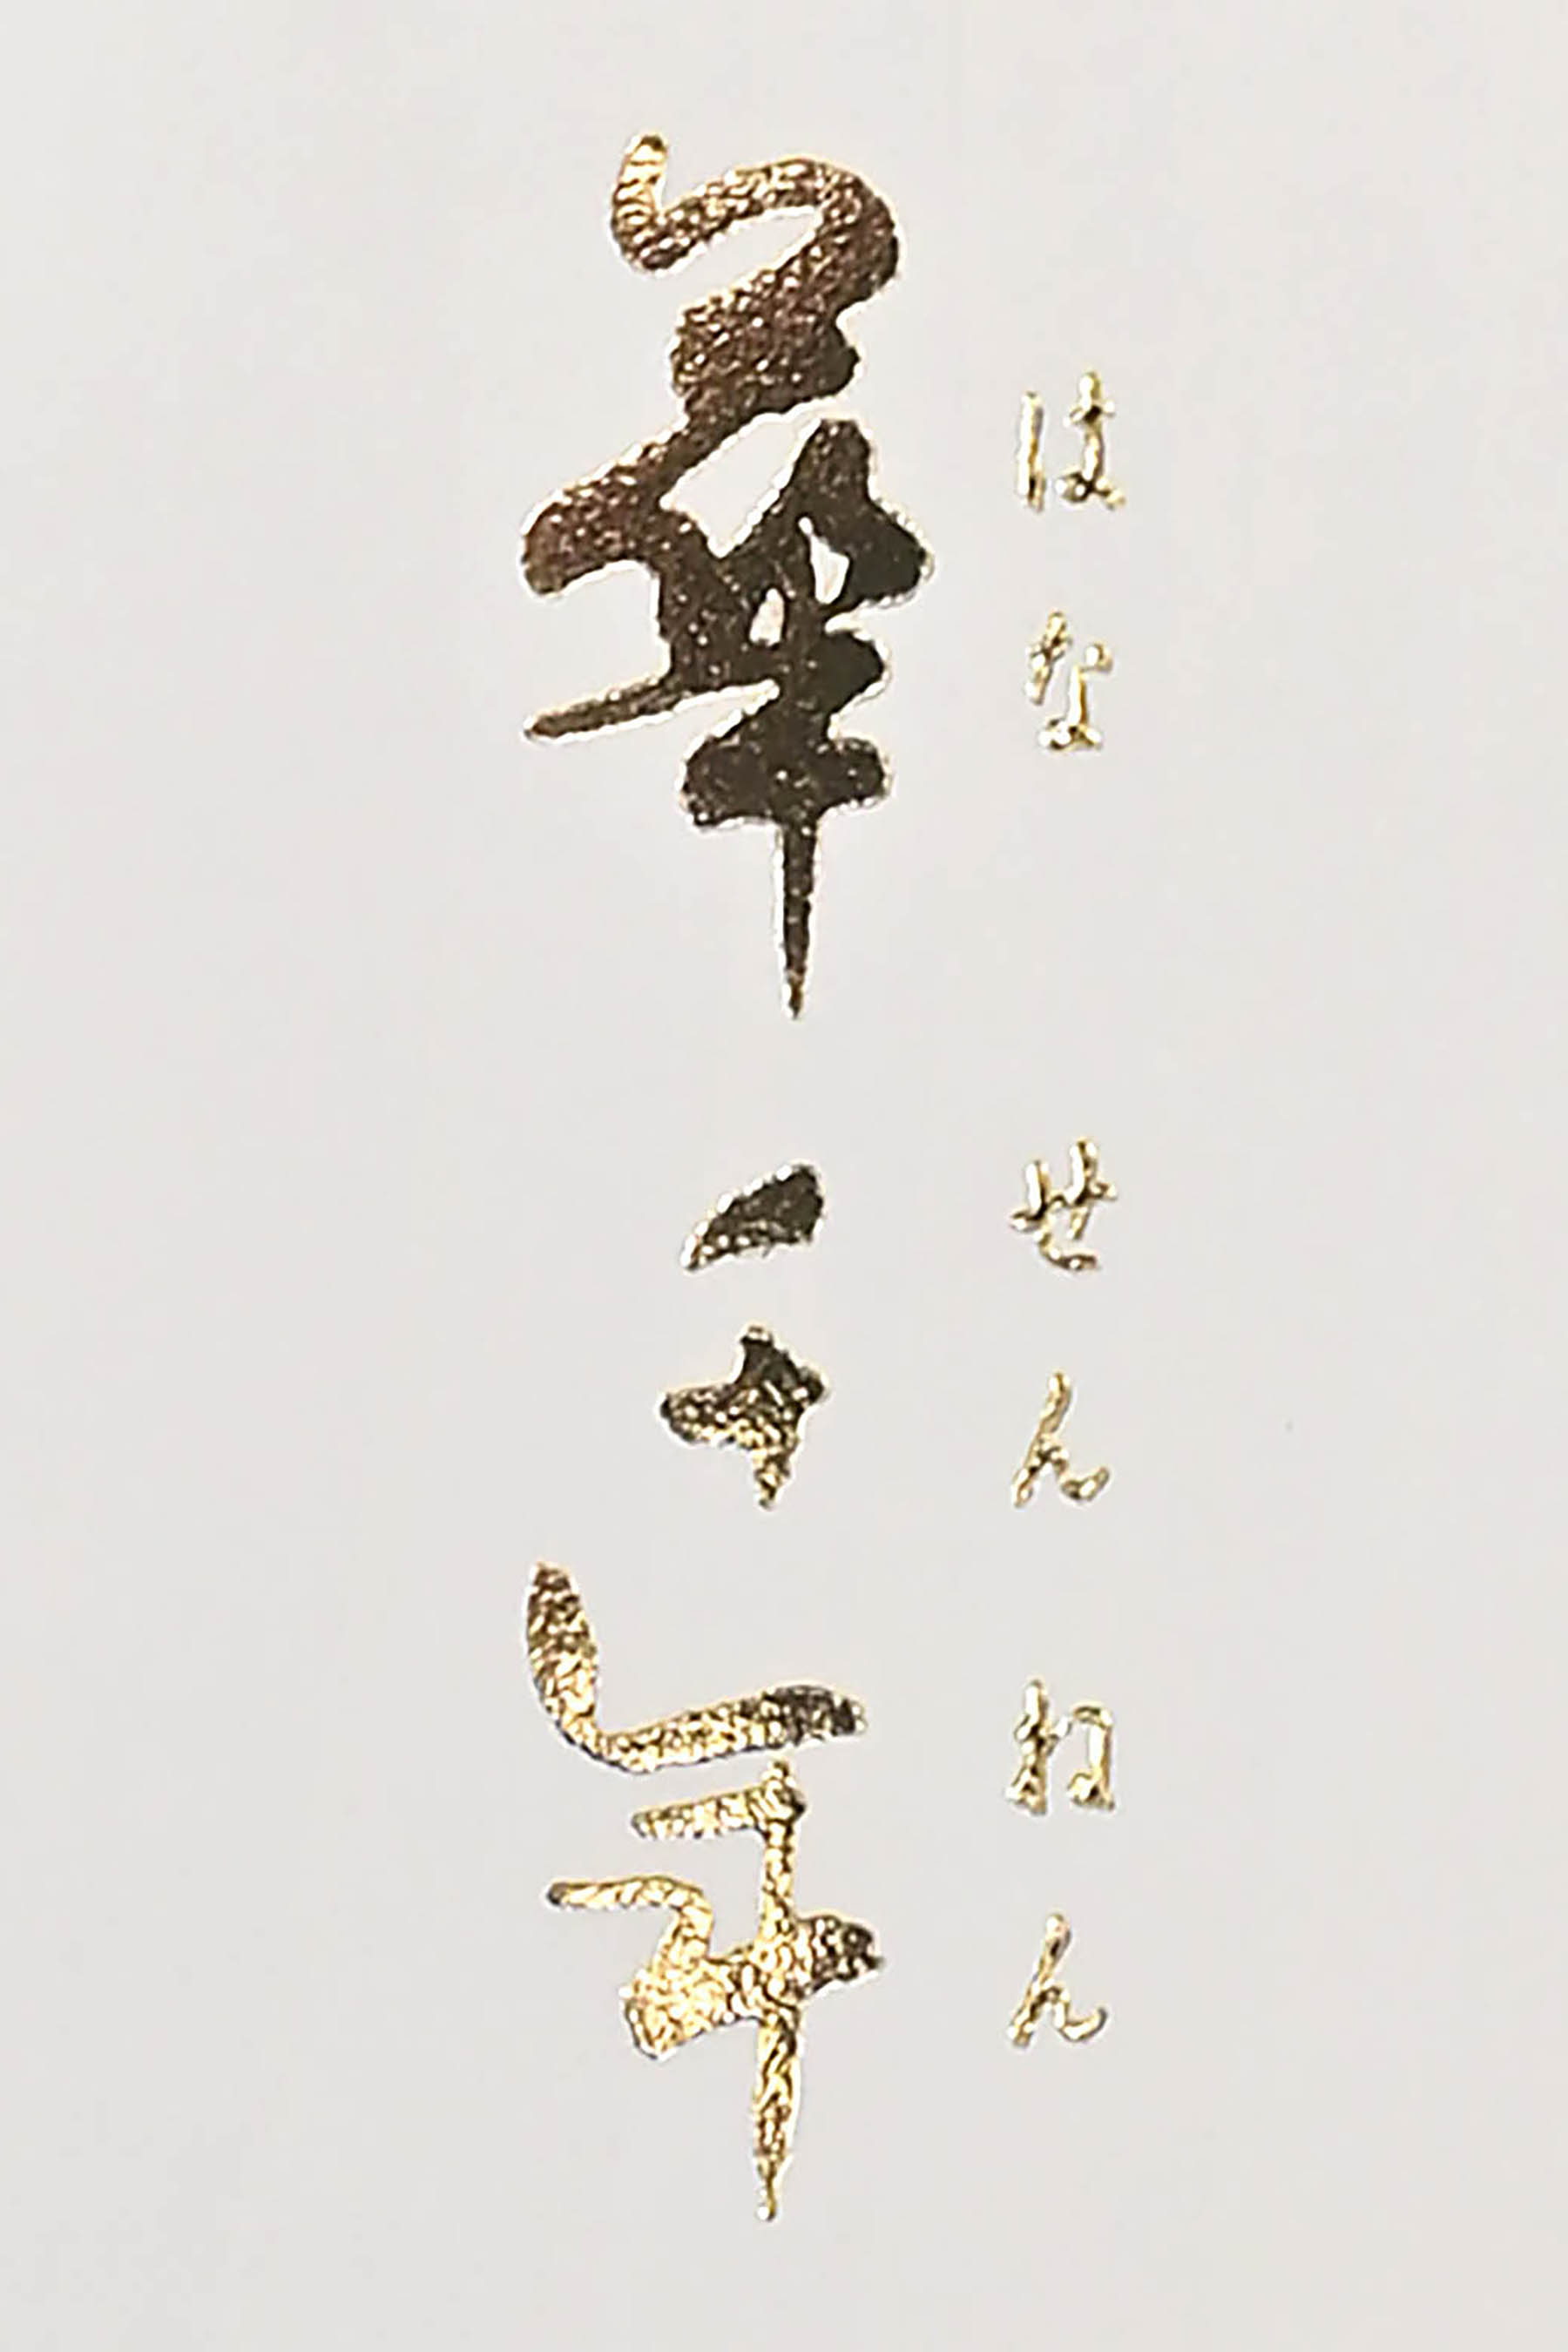 はなせんねん
華千年